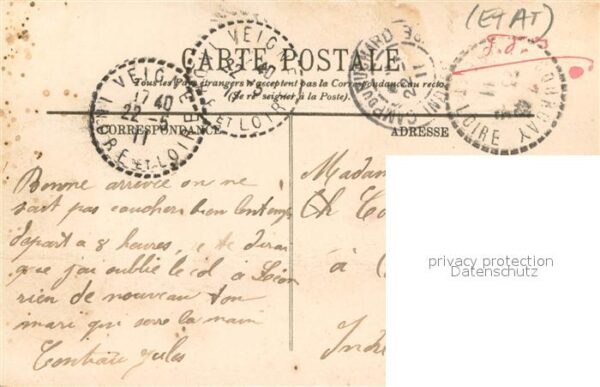 (ETAT)
CARTE POSTALE
Tous les pays étrangers n'acceptent pas la Correspondance au recto
(Se renseigner à la Poste).
VEIGNÉ
17 40
22 -5
11
INDRE ET LOIRE
CORRESPONDANCE
ADRESSE
Bonne arrivée on ne
sait pas coucher bien lontemps
depart a 8 heures, je te dirai
que j'ai oublié le col à Léon
rien de nouveau ton
mari qui serre la main
Jules
Madam
Ch Co
à
Indre
privacy protection
Datenschutz